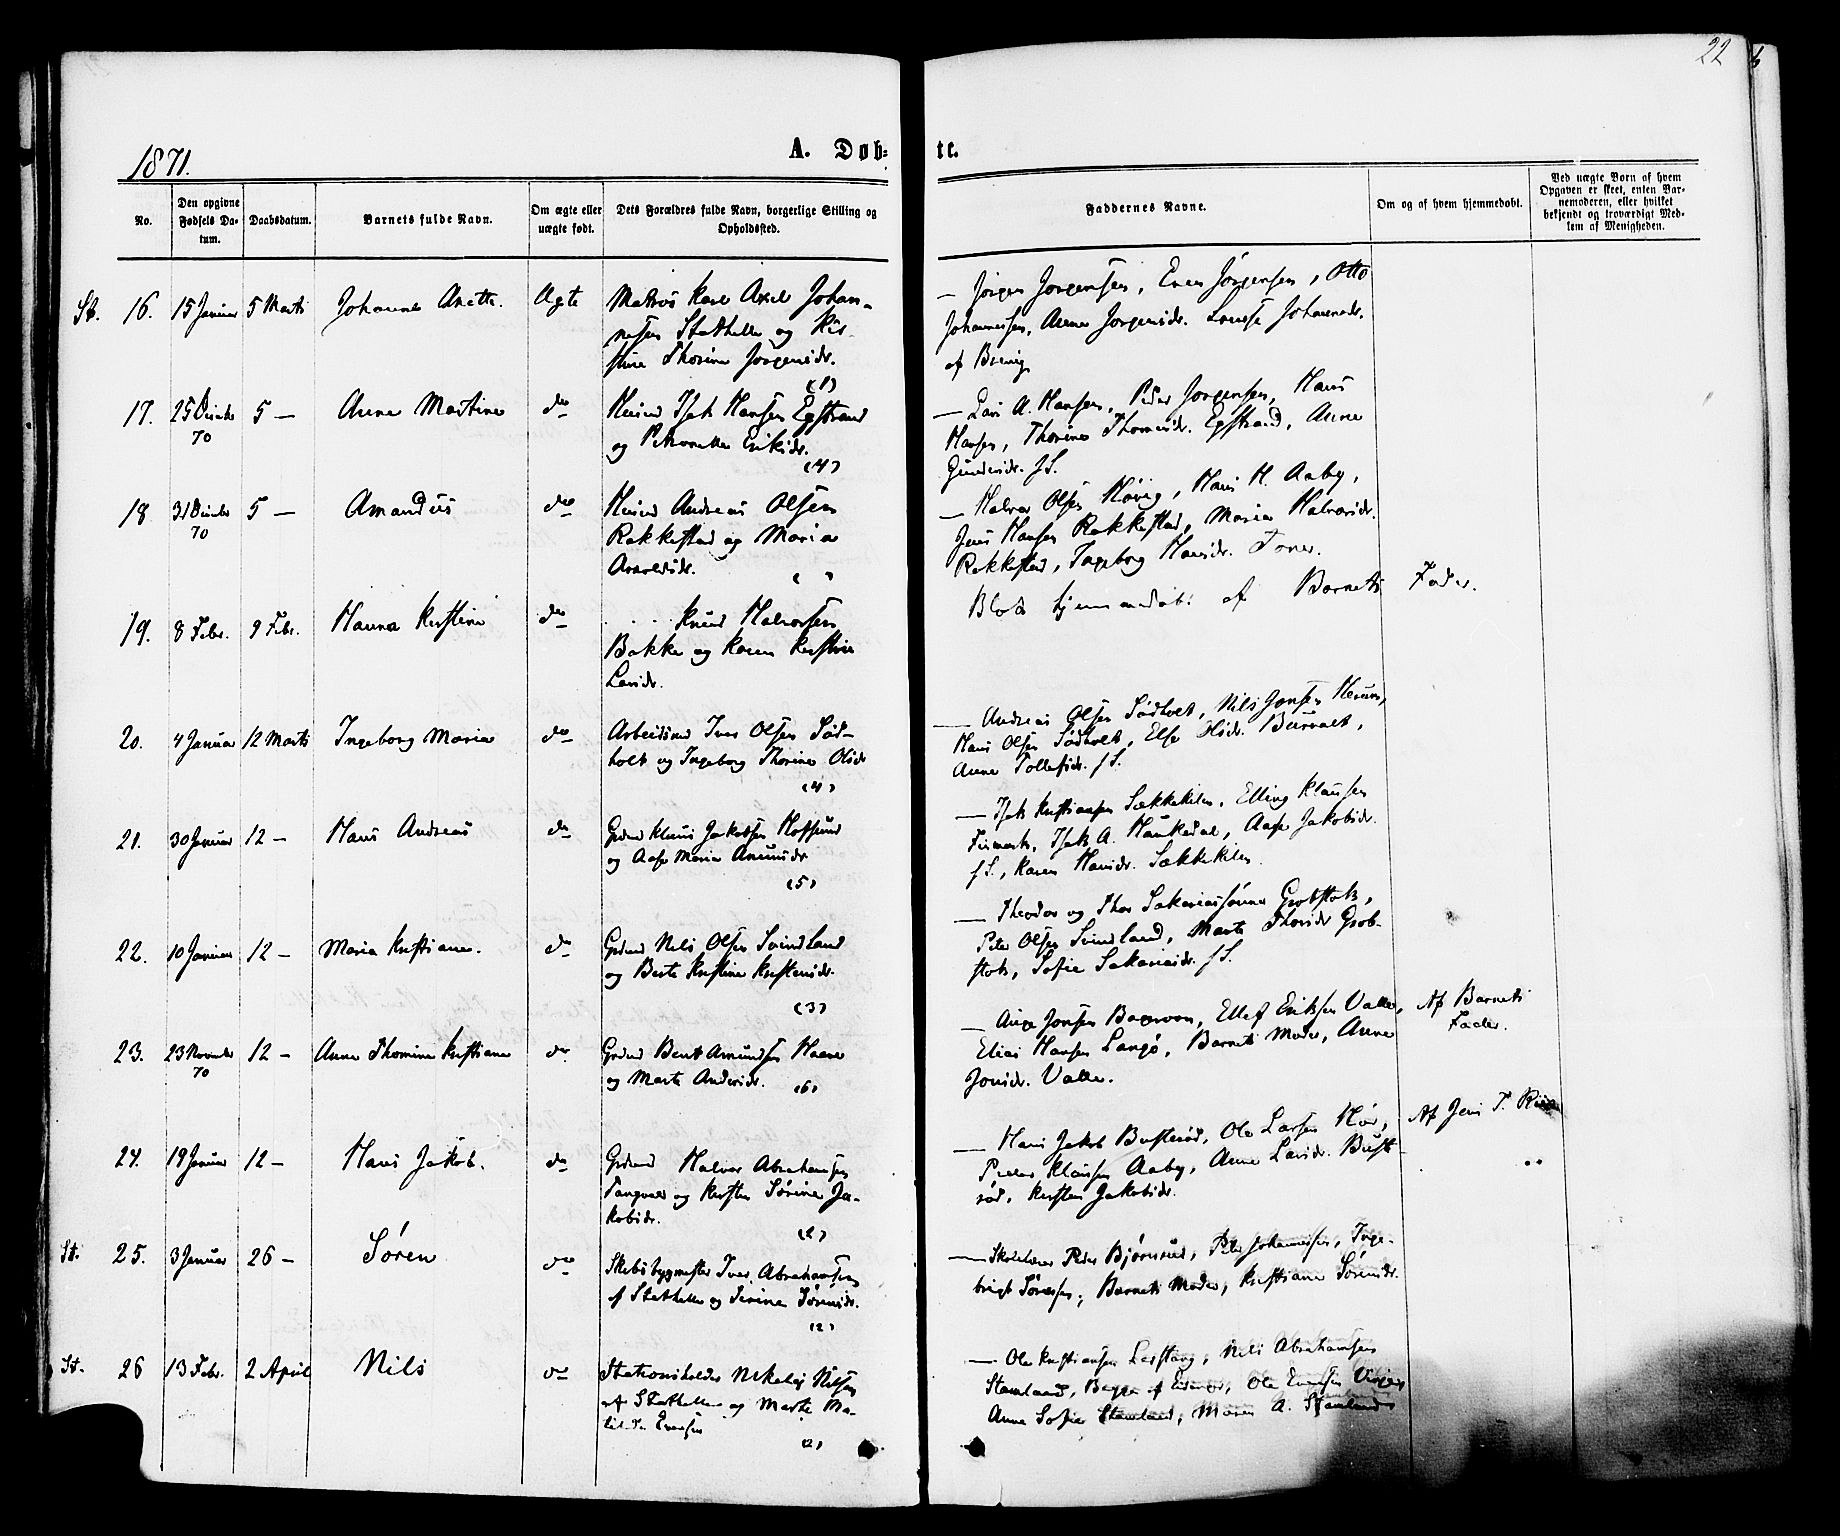 22
1871.
A. Døb-
te.
No.
Den opgivne Fødsels Da-
tum.
Daabsdatum.
Barnets fulde Navn.
Om ægte eller
uægte født.
Dets Forældres fulde Navn, borgerlige Stilling og
Opholdssted.
Faddernes Navne.
Om og af hvem hjemmedøbt.
Ved uægte Børn af hvem
Opgaven er skeet, enten Bar-
nemoderen, eller hvilket
bekjendt og troværdigt Med-
lem af Menigheden.
St. 16. 15 Januar 5 Marts Johanne Anette. Ægte
Matros Karl Axel Johan-
nesen Stathelle og Kir-
stine Thorine Jørgensdr.
(1)
— Jørgen Jørgensen, Even Jørgensen, Otto
Johannesen, Anne Jørgensdr. Lovise Johannesdr.
af Brevig
17. 25 December 70 5 — Anne Martine do
Husmd Isak Hansen Egstrand
og Petronelle Eriksdr.
(4)
— Lars A. Hansen, Peder Jørgensen, Hans
Hansen, Thorine Thomesdr. Egstrand, Anne
Gundersdr. f S.
18 31 December 70 5 — Amandus do
Husmd Andreas Olsen
Rakkestad og Maria
Aroldsdr.
( )
— Halvor Olsen Høvig, Hans H. Aaby,
Jens Hansen Rakkestad, Maria Halvorsdr.
Rakkestad, Ingeborg Hansdr. Toner.
19. 8 Febr. 9 Febr. Hanna Kirstine do
. . . . Knud Halvorsen
Bakke og Karen Kirstine
Larsdr.
Blot hjemmedøbt af Barnets Fader.
20. 4 Januar 12 Marts Ingeborg Maria do
Arbeidsmd Iver Olsen Sød-
holt og Ingeborg Thorine Olsdr
(4)
— Andreas Olsen Sødholt, Nils Jensen
Hans Olsen Sødholt, Else Olsdr.
Anne Tollefsdr. f S.
21. 30 Januar 12 — Hans Andreas do
Grdmd Klaus Jakobsen Hafsund
og Aase Maria Amundsdr
(5)
— Isak Kristiansen Sækkekilen, Elling Klausen
Isak A. Haukedal, Aase Jakobsdr.
f S., Karen Hansdr. Sækkekilen.
22. 10 Januar 12 — Maria Kirstiane. do
Grdmd Nils Olsen Svindland
og Berte Kirstine Kirstensdr.
(3)
— Theodor og Thor Sakariassønner Grobstok,
Peter Olsen Svindland, Marte Thorsdr Grob-
stok, Sofie Sakariasdr. f S.
23. 23 November 70 12 — Anne Thomine Kristiane do
Grdmd Bent Amundsen
og Marte Andersdr.
(6)
— Jonsen Ellef Eriksen Valle,
Elias Hansen Langø, Barnets Moder, Anne
Jonsdr. Valle.
Af Barnets
Fader.
24. 19 Januar 12 — Hans Jakob. do
Grdmd Halvor Abrahamsen
Tangvald og Kirsten Sørine Ja-
kobsdr.
(2)
— Hans Jakob Bustrød, Ole Larsen
Peder Klausen Aaby, Anne Larsdr. Bust-
rød, Kirsten Jakobsdr.
Af Jens T.
St. 25. 3 Januar 26 — Søren do
Skibsbygmester Iver Abrahamsen
af Stathelle og Serine Sørensdr.
(2)
— Skolelærer Peder Bjørnsund, Peter Johannesen, Inge-
brigt Sørensen, Barnets Moder, Kristiane Sørensdr.
St. 26 13 Febr. 2 April Nils do
Stationsholder Nikolaj Nilsen
af Stathelle og Marte Ma-
tilde Evensen
(2)
— Ole Kristiansen Nils Abrahamsen
Stamland, Begge af Ole Evensen
Anne Sofie Stamland, Maren A. Stamland